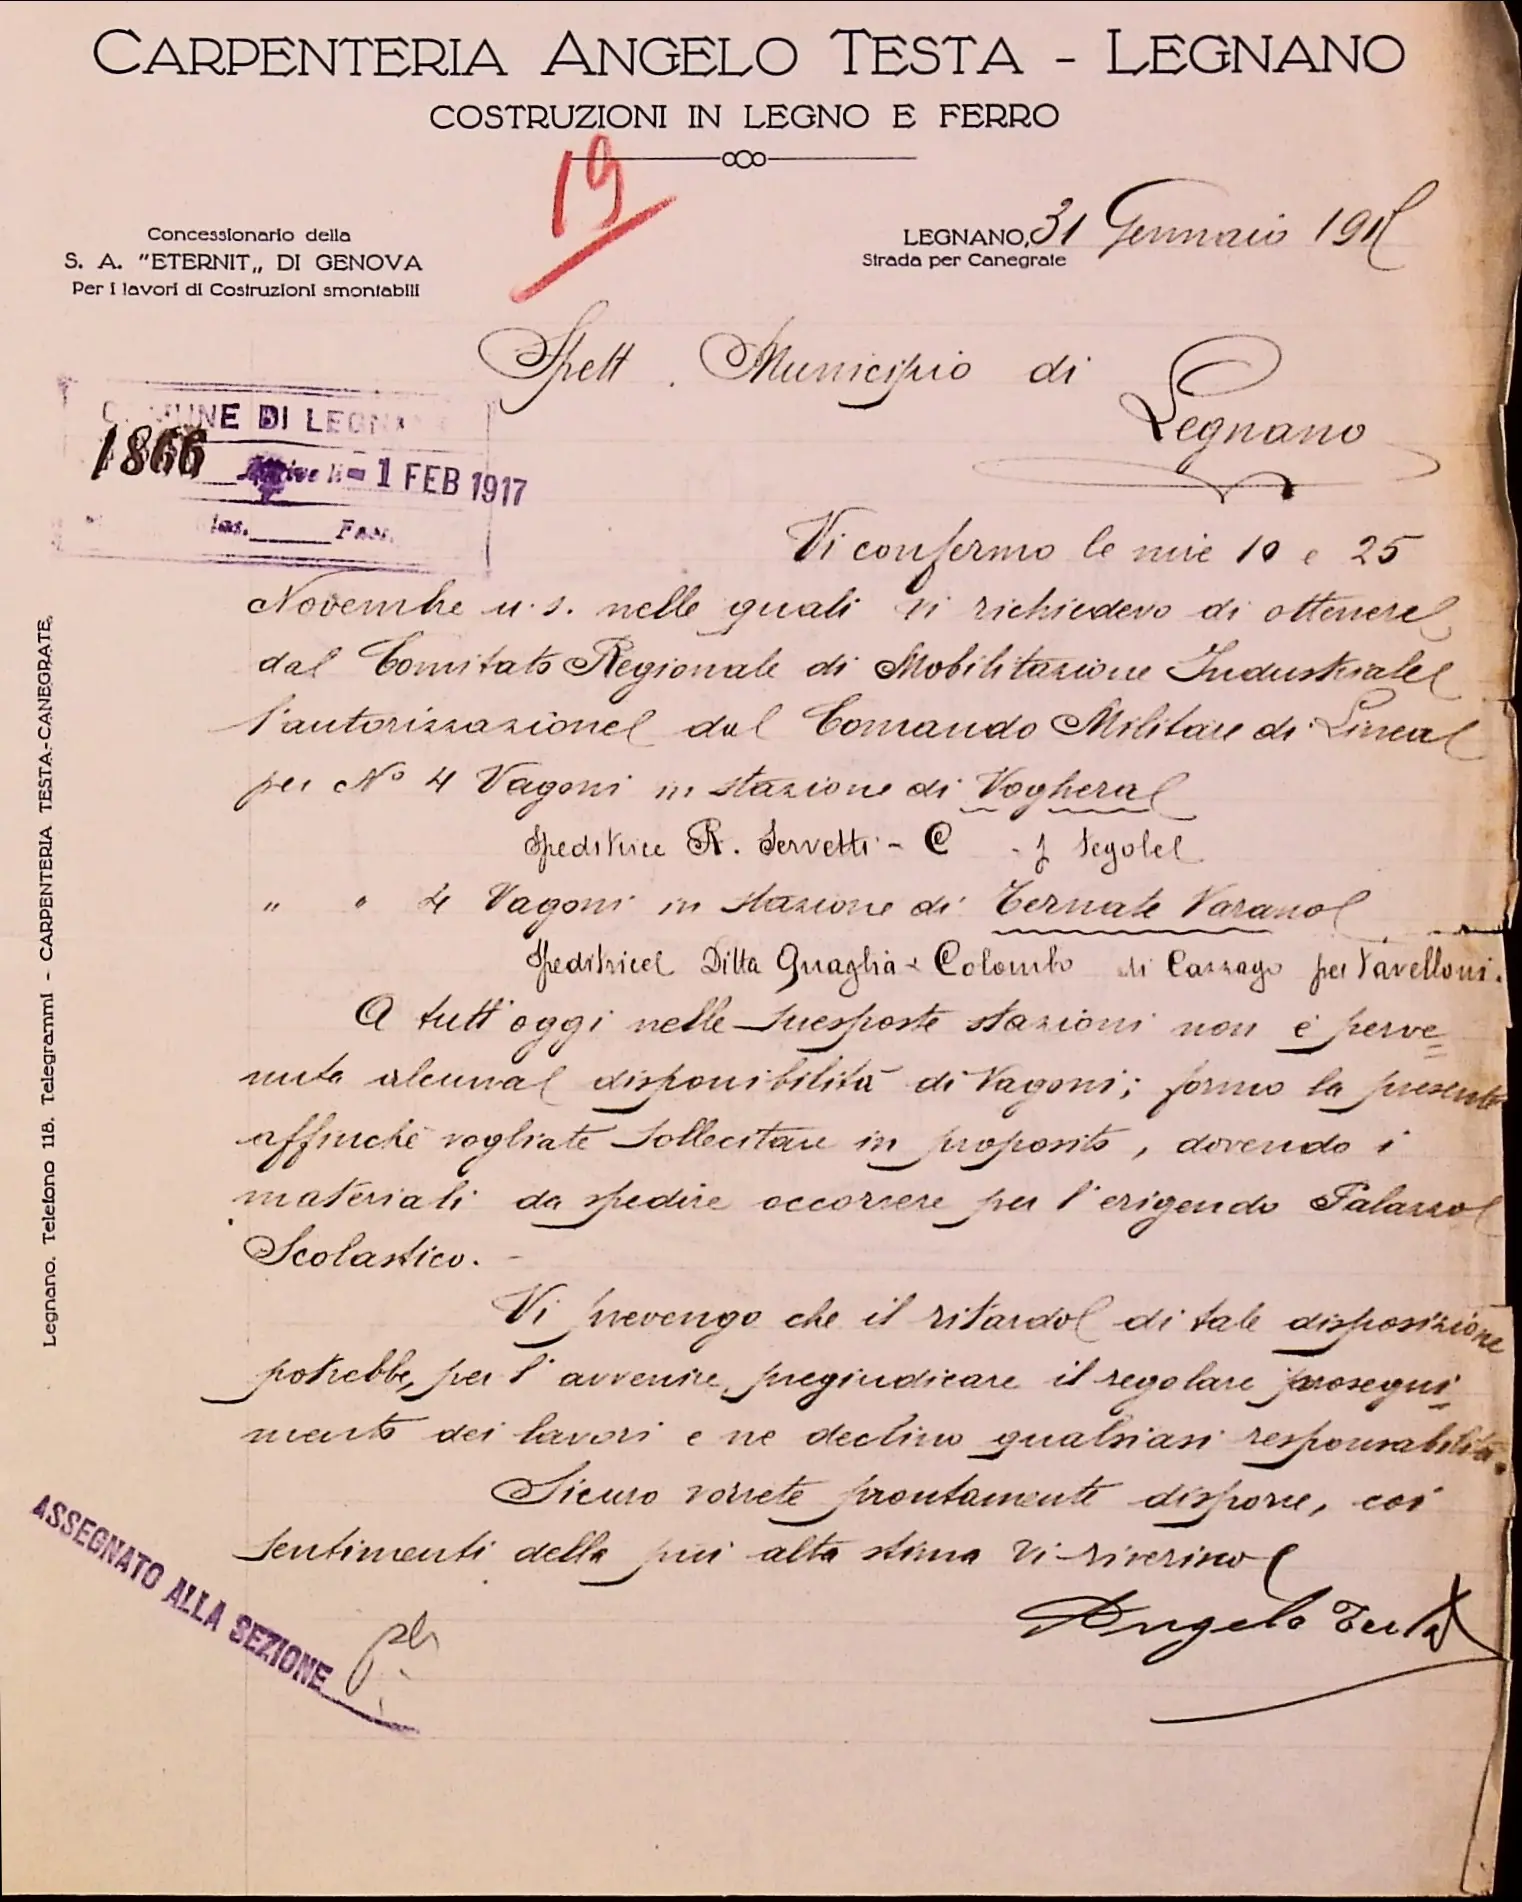 CARPENTERIA ANGELO TESTA - LEGNANO
COSTRUZIONI IN LEGNO E FERRO
19
Concessionario della
S. A. "ETERNIT„ DI GENOVA
Per i lavori di Costruzioni smontabili
LEGNANO, 31 Gennaio 191
Strada per Canegrate
Spett. Municipio di
Legnano
COMUNE DI LEGNANO
1866 Arrivo li - 1 FEB 1917
las. Fasc.
Vi confermo le mie 10 e 25
Novembre u. s. nelle quali vi richiedevo di ottenere
dal Comitato Regionale di Mobilitazione Industriale
l'autorizzazione dal Comando Militare di Linea
per No 4 Vagoni in stazione di Voghera
Speditrice R. Servetti - C Tegole
" " 4 Vagoni in stazione di Ternate Varano
Speditrice Ditta Quaglia & Colombo di Cazzago per Tavelloni.
A tutt'oggi nelle suesposte stazioni non è perve=
nuta alcuna disponibilità di Vagoni; formo la presente
affinchè vogliate sollecitare in proposito, dovendo i
materiali da spedire occorrere per l'erigendo Palazzo
Scolastico. -
Vi prevengo che il ritardo di tale disposizione
potrebbe, per l'avvenire, pregiudicare il regolare prosegui=
mento dei lavori e ne declino qualsiasi responsabilità.
Sicuro vorrete prontamente disporre, coi
sentimenti della più alta stima Vi riverisco
Angelo Testa
ASSEGNATO ALLA SEZIONE
Legnano. Telefono 118. Telegrammi - CARPENTERIA TESTA-CANEGRATE.